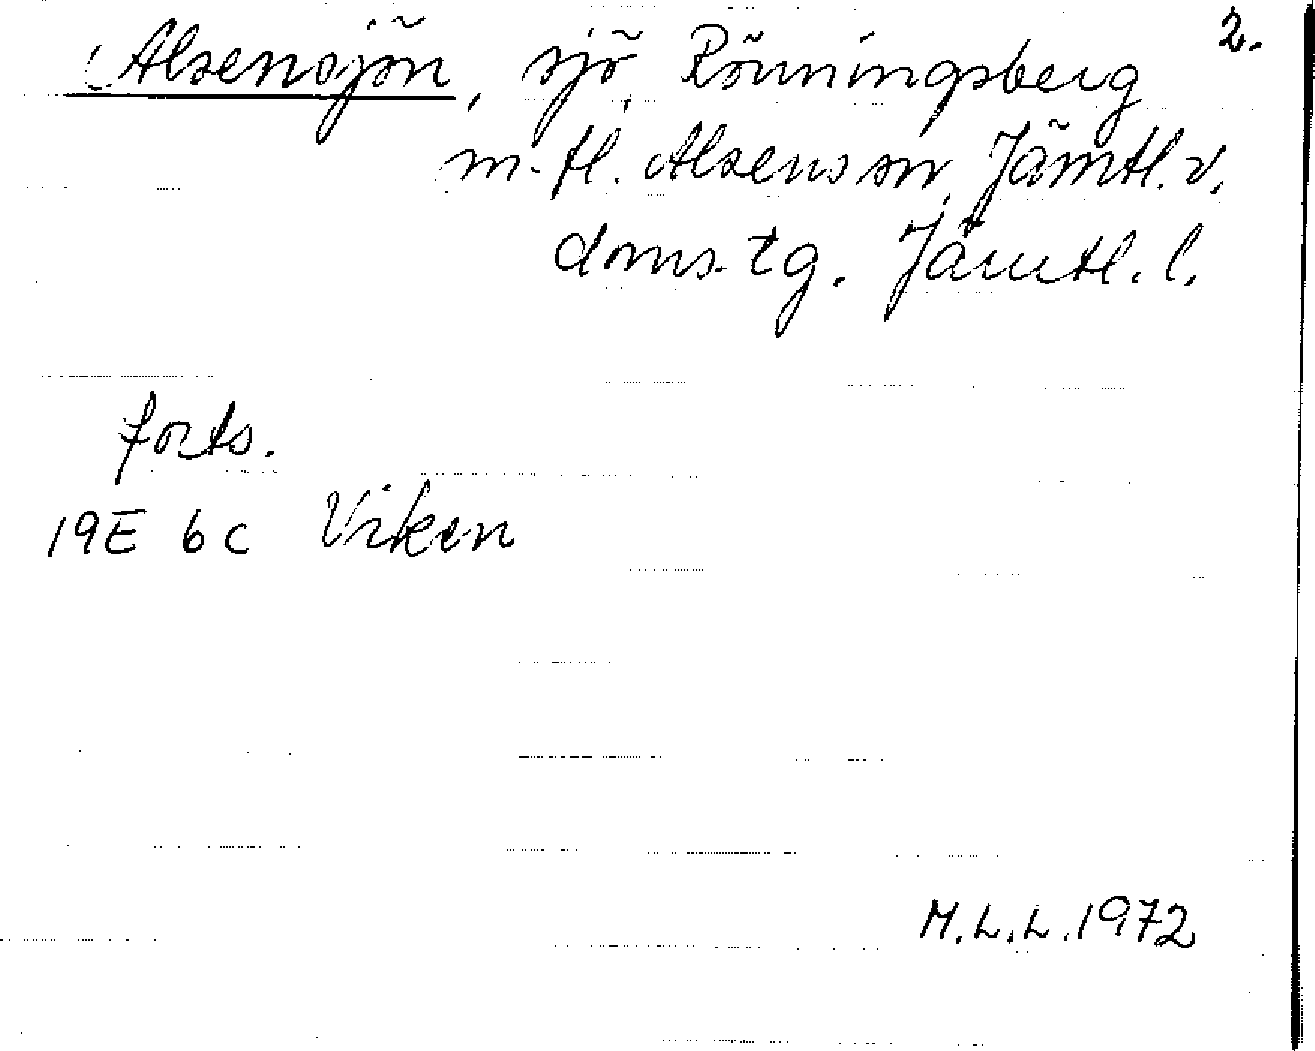 2.
Alsensjön, sjö, Rönningsberg
m. fl. Alsens sn, Jämtl. v.
doms. tg. Jämtl. l.
forts.
19E 6c Viken
M.L.L. 1972